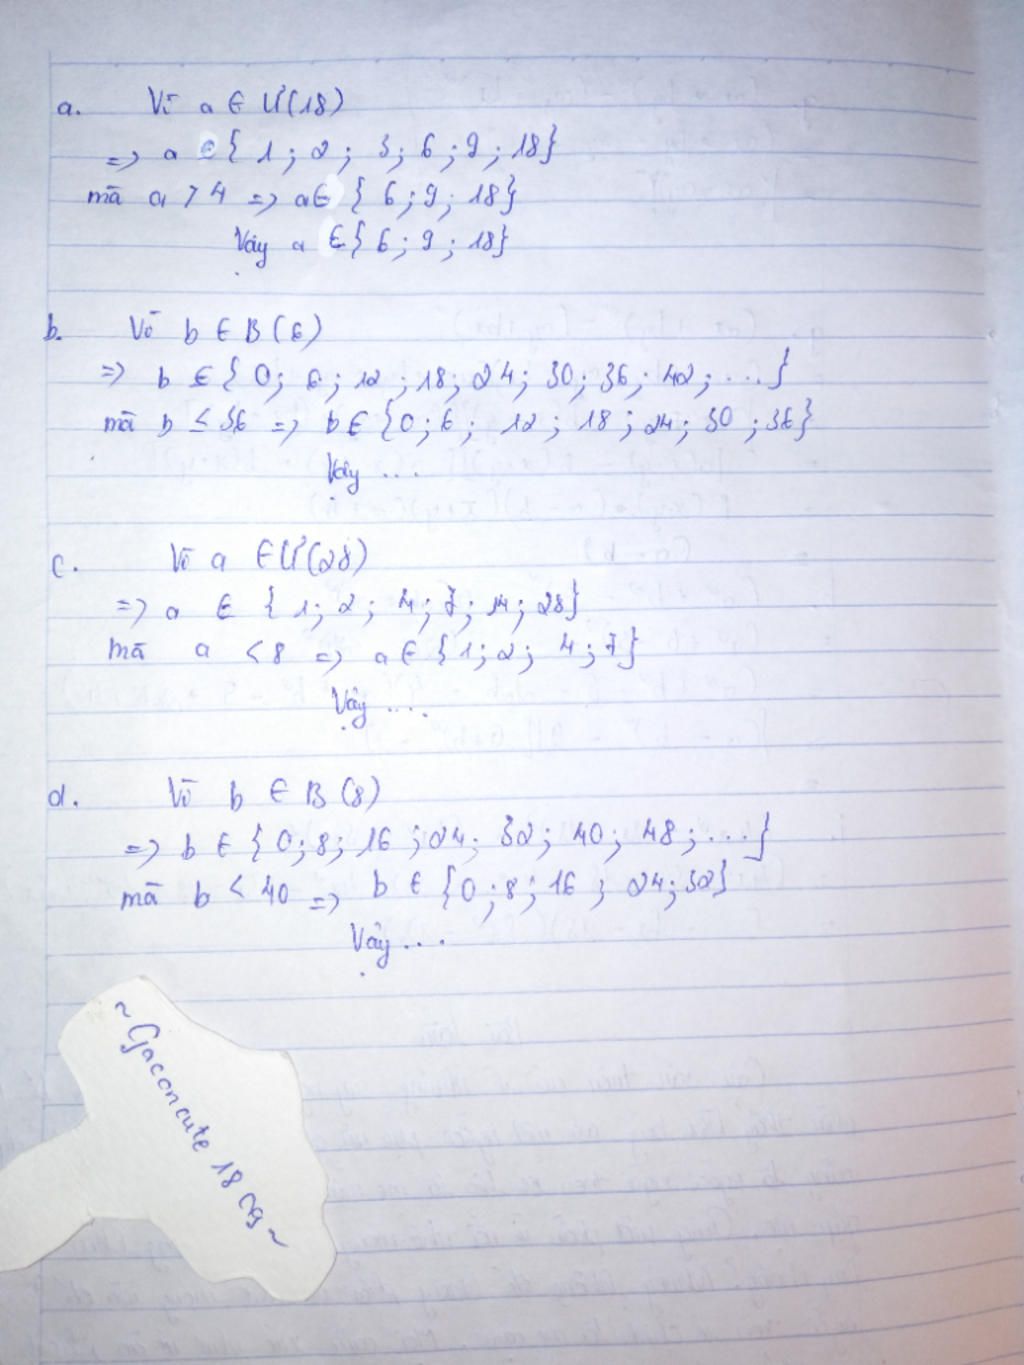 a. Vì a ∈ Ư(18)
=> a ∈ { 1 ; 2 ; 3 ; 6 ; 9 ; 18}
mà a > 4 => a ∈ { 6 ; 9 ; 18}
Vậy a ∈ { 6 ; 9 ; 18}
b. Vì b ∈ B (6)
=> b ∈ { 0 ; 6 ; 12 ; 18 ; 24 ; 30 ; 36 ; 42 ; ... }
mà b ≤ 36 => b ∈ {0 ; 6 ; 12 ; 18 ; 24 ; 30 ; 36}
Vậy ...
c. Vì a ∈ Ư(28)
=> a ∈ { 1 ; 2 ; 4 ; 7 ; 14 ; 28}
mà a < 8 => a ∈ { 1 ; 2 ; 4 ; 7}
Vậy ....
d. Vì b ∈ B (8)
=> b ∈ { 0 ; 8 ; 16 ; 24 ; 32 ; 40 ; 48 ; ... }
mà b < 40 => b ∈ {0 ; 8 ; 16 ; 24 ; 32}
Vậy ...
~ Gaconcute 18 cg ~